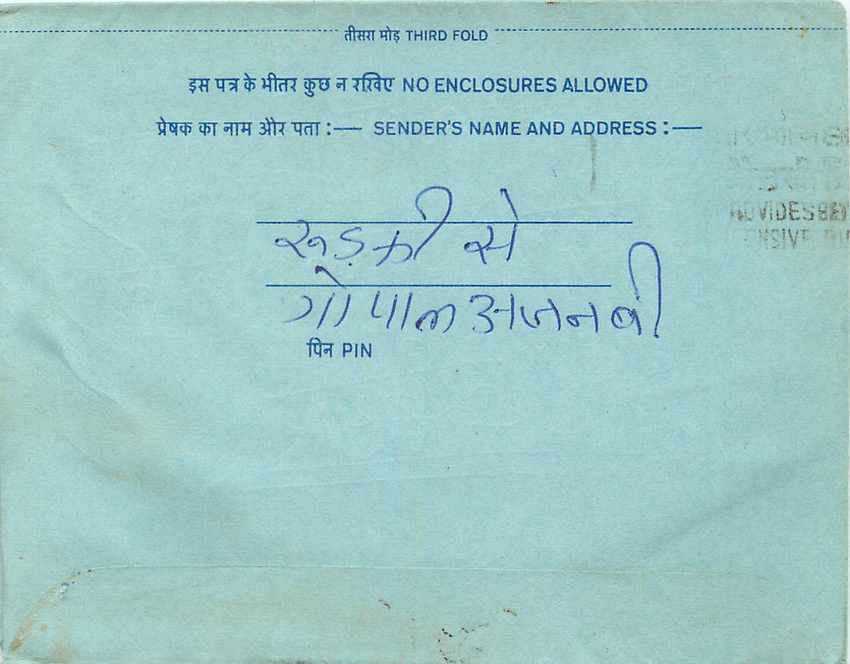 तीसरा मोड़ THIRD FOLD
इस पत्र के भीतर कुछ न रखिए NO ENCLOSURES ALLOWED
प्रेषक का नाम और पता :— SENDER'S NAME AND ADDRESS :—
रूड़की से
गोपाल अजनबी
पिन PIN